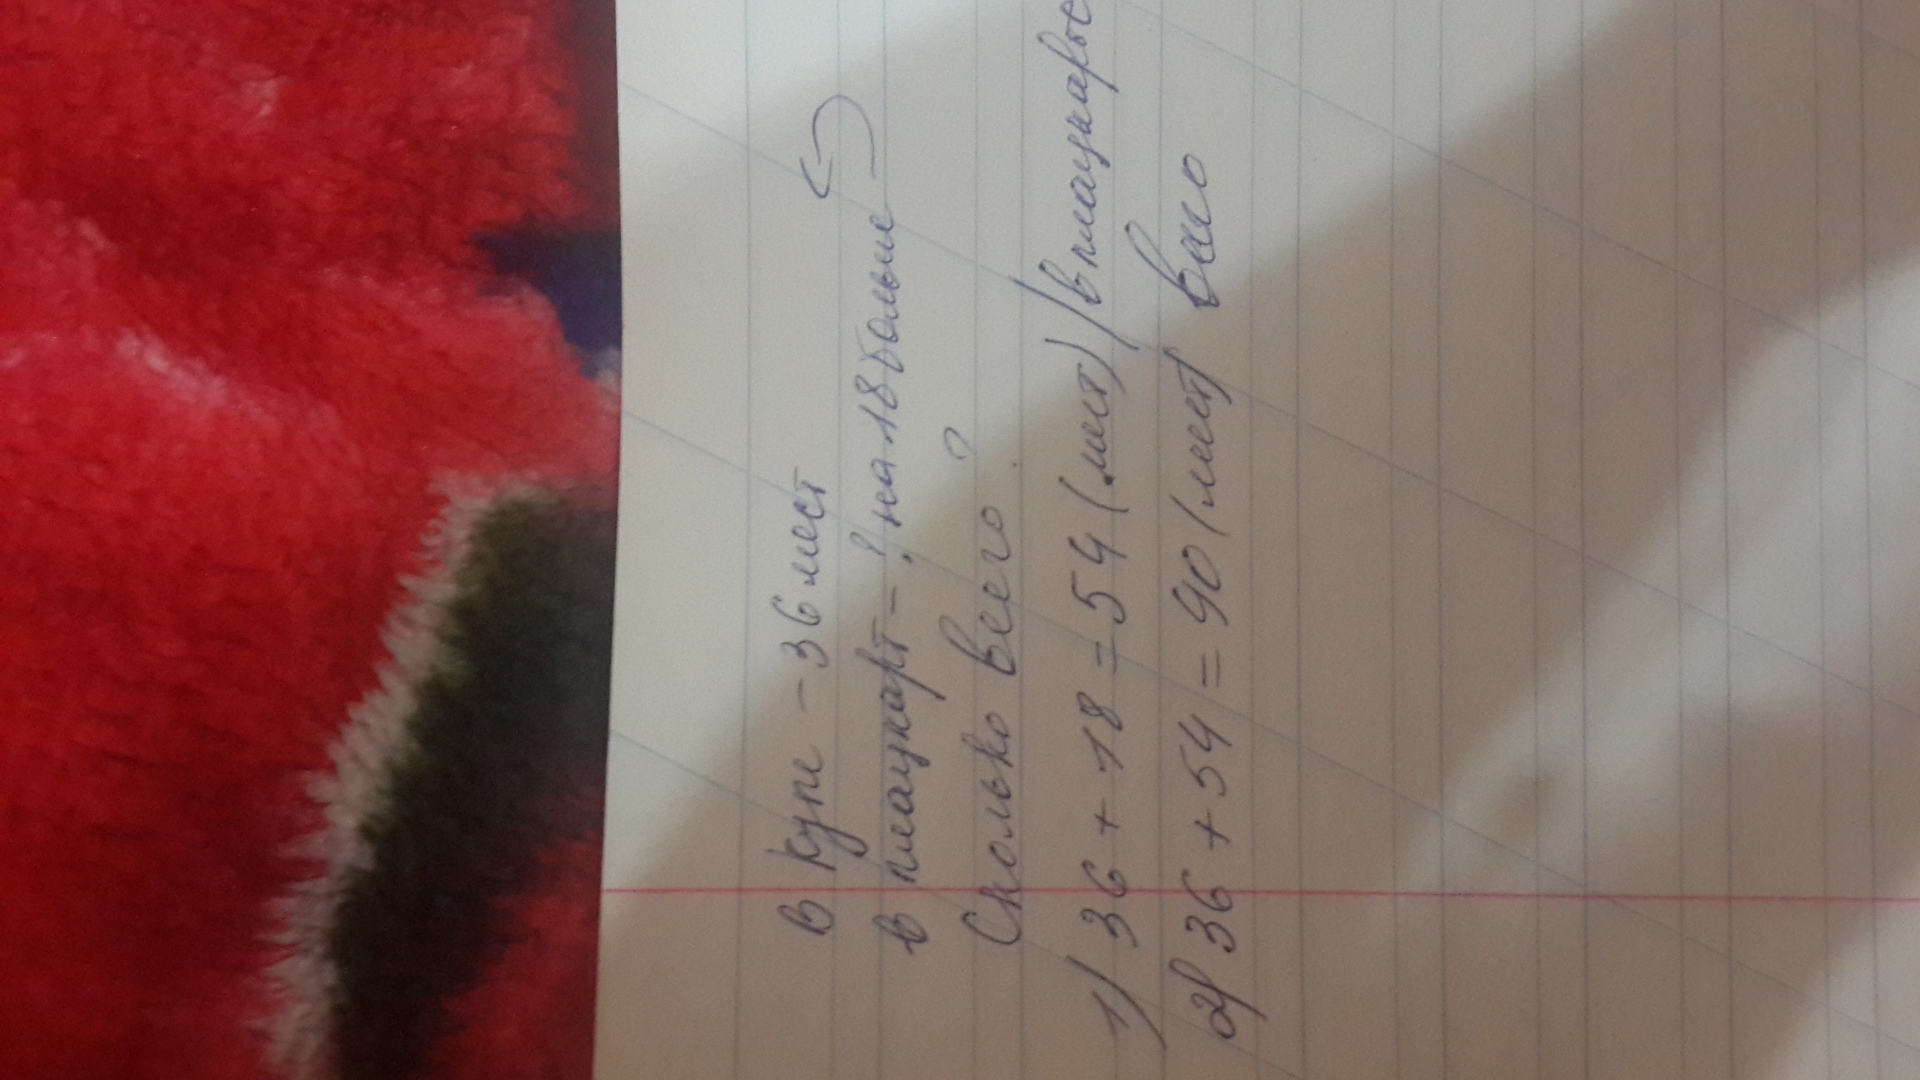 В купе - 36 мест
в плацкарт - ? на 18 больше
Сколько всего ?
1) 36 + 18 = 54 (мест) в плацкарте
2) 36 + 54 = 90 (мест) всего